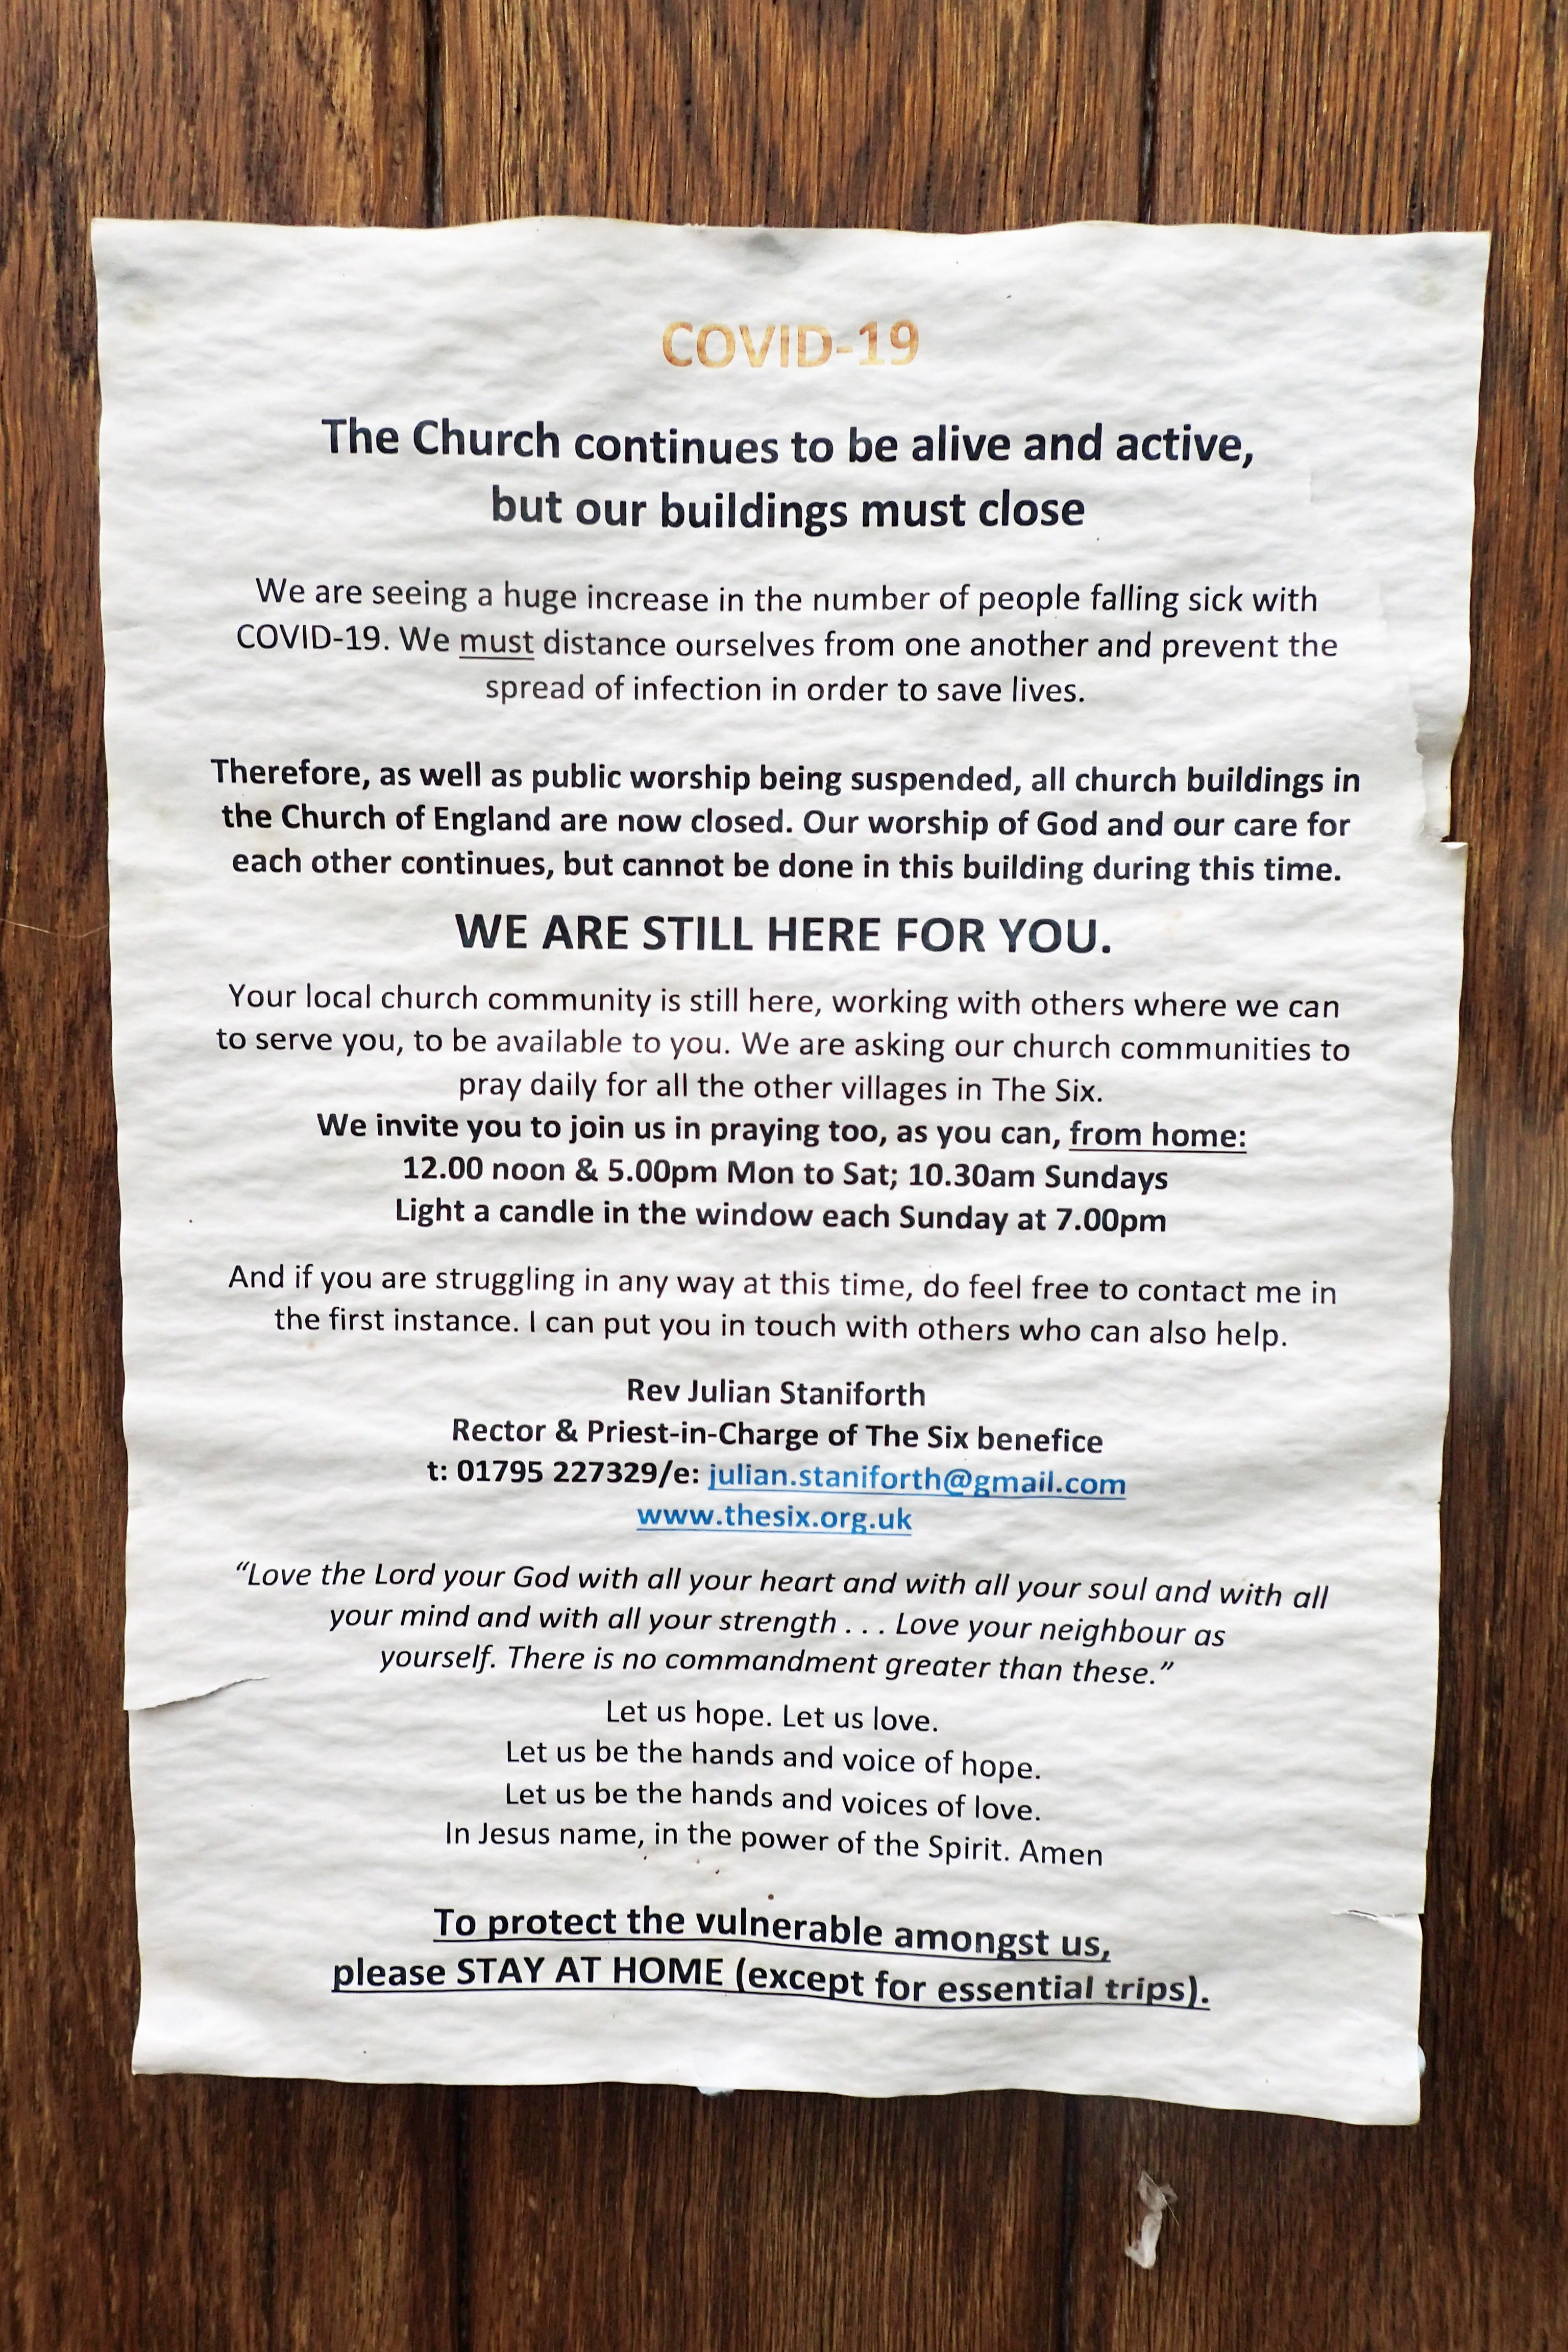 COVID-19
The Church continues to be alive and active,
but our buildings must close
We are seeing a huge increase in the number of people falling sick with
COVID-19. We must distance ourselves from one another and prevent the
spread of infection in order to save lives.
Therefore, as well as public worship being suspended, all church buildings in
the Church of England are now closed. Our worship of God and our care for
each other continues, but cannot be done in this building during this time.
WE ARE STILL HERE FOR YOU.
Your local church community is still here, working with others where we can
to serve you, to be available to you. We are asking our church communities to
pray daily for all the other villages in The Six.
We invite you to join us in praying too, as you can, from home:
12.00 noon & 5.00pm Mon to Sat; 10.30am Sundays
Light a candle in the window each Sunday at 7.00pm
And if you are struggling in any way at this time, do feel free to contact me in
the first instance. I can put you in touch with others who can also help.
Rev Julian Staniforth
Rector & Priest-in-Charge of The Six benefice
t: 01795 227329/e: julian.staniforth@gmail.com
www.thesix.org.uk
“Love the Lord your God with all your heart and with all your soul and with all
your mind and with all your strength . . . Love your neighbour as
yourself. There is no commandment greater than these.”
Let us hope. Let us love.
Let us be the hands and voice of hope.
Let us be the hands and voices of love.
In Jesus name, in the power of the Spirit. Amen
To protect the vulnerable amongst us,
please STAY AT HOME (except for essential trips).